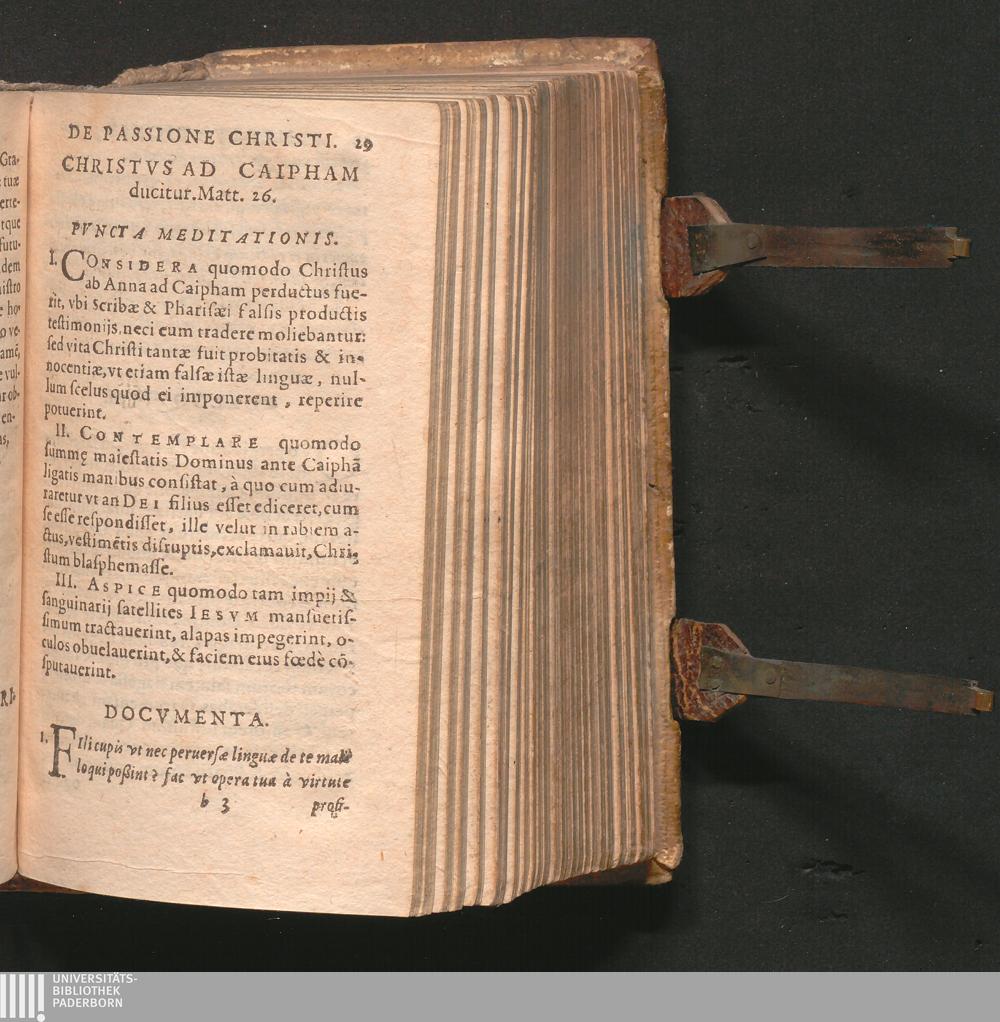 DE PASSIONE CHRISTI. 29
CHRISTVS AD CAIPHAM
ducitur. Matt. 26.
PVNCTA MEDITATIONIS.
I. CONSIDERA quomodo Christus
ab Anna ad Caipham perductus fue-
rit, vbi Scribæ & Pharisæi falsis productis
testimonijs, neci eum tradere moliebantur:
sed vita Christi tantæ fuit probitatis & in-
nocentiæ, vt etiam falsæ istæ linguæ, nul-
lum scelus quod ei imponerent, reperire
potuerint.
II. CONTEMPLARE quomodo
summę maiestatis Dominus ante Caiphã
ligatis manibus consistat, à quo cum adiu-
raretur vt an DEI filius esset ediceret, cum
se esse respondisset, ille velut in rabiem a-
ctus, vestimẽtis disruptis, exclamauit, Chri-
stum blasphemasse.
III. ASPICE quomodo tam impij &
sanguinarij satellites IESVM mansuetis-
simum tractauerint, alapas impegerint, o-
culos obuelauerint, & faciem eius fœdè cõ-
sputauerint.
DOCVMENTA.
I. FIli cupis vt nec peruersæ linguæ de te malè
loqui possint? fac vt opera tua à virtute
b 3 profi-
Gra-
tuæ
erte-
tque
futu-
dem
istro
e ho-
o ve-
amẽ,
e vul-
ir ob-
en-
as,
RI-
UNIVERSITÄTS-
BIBLIOTHEK
PADERBORN